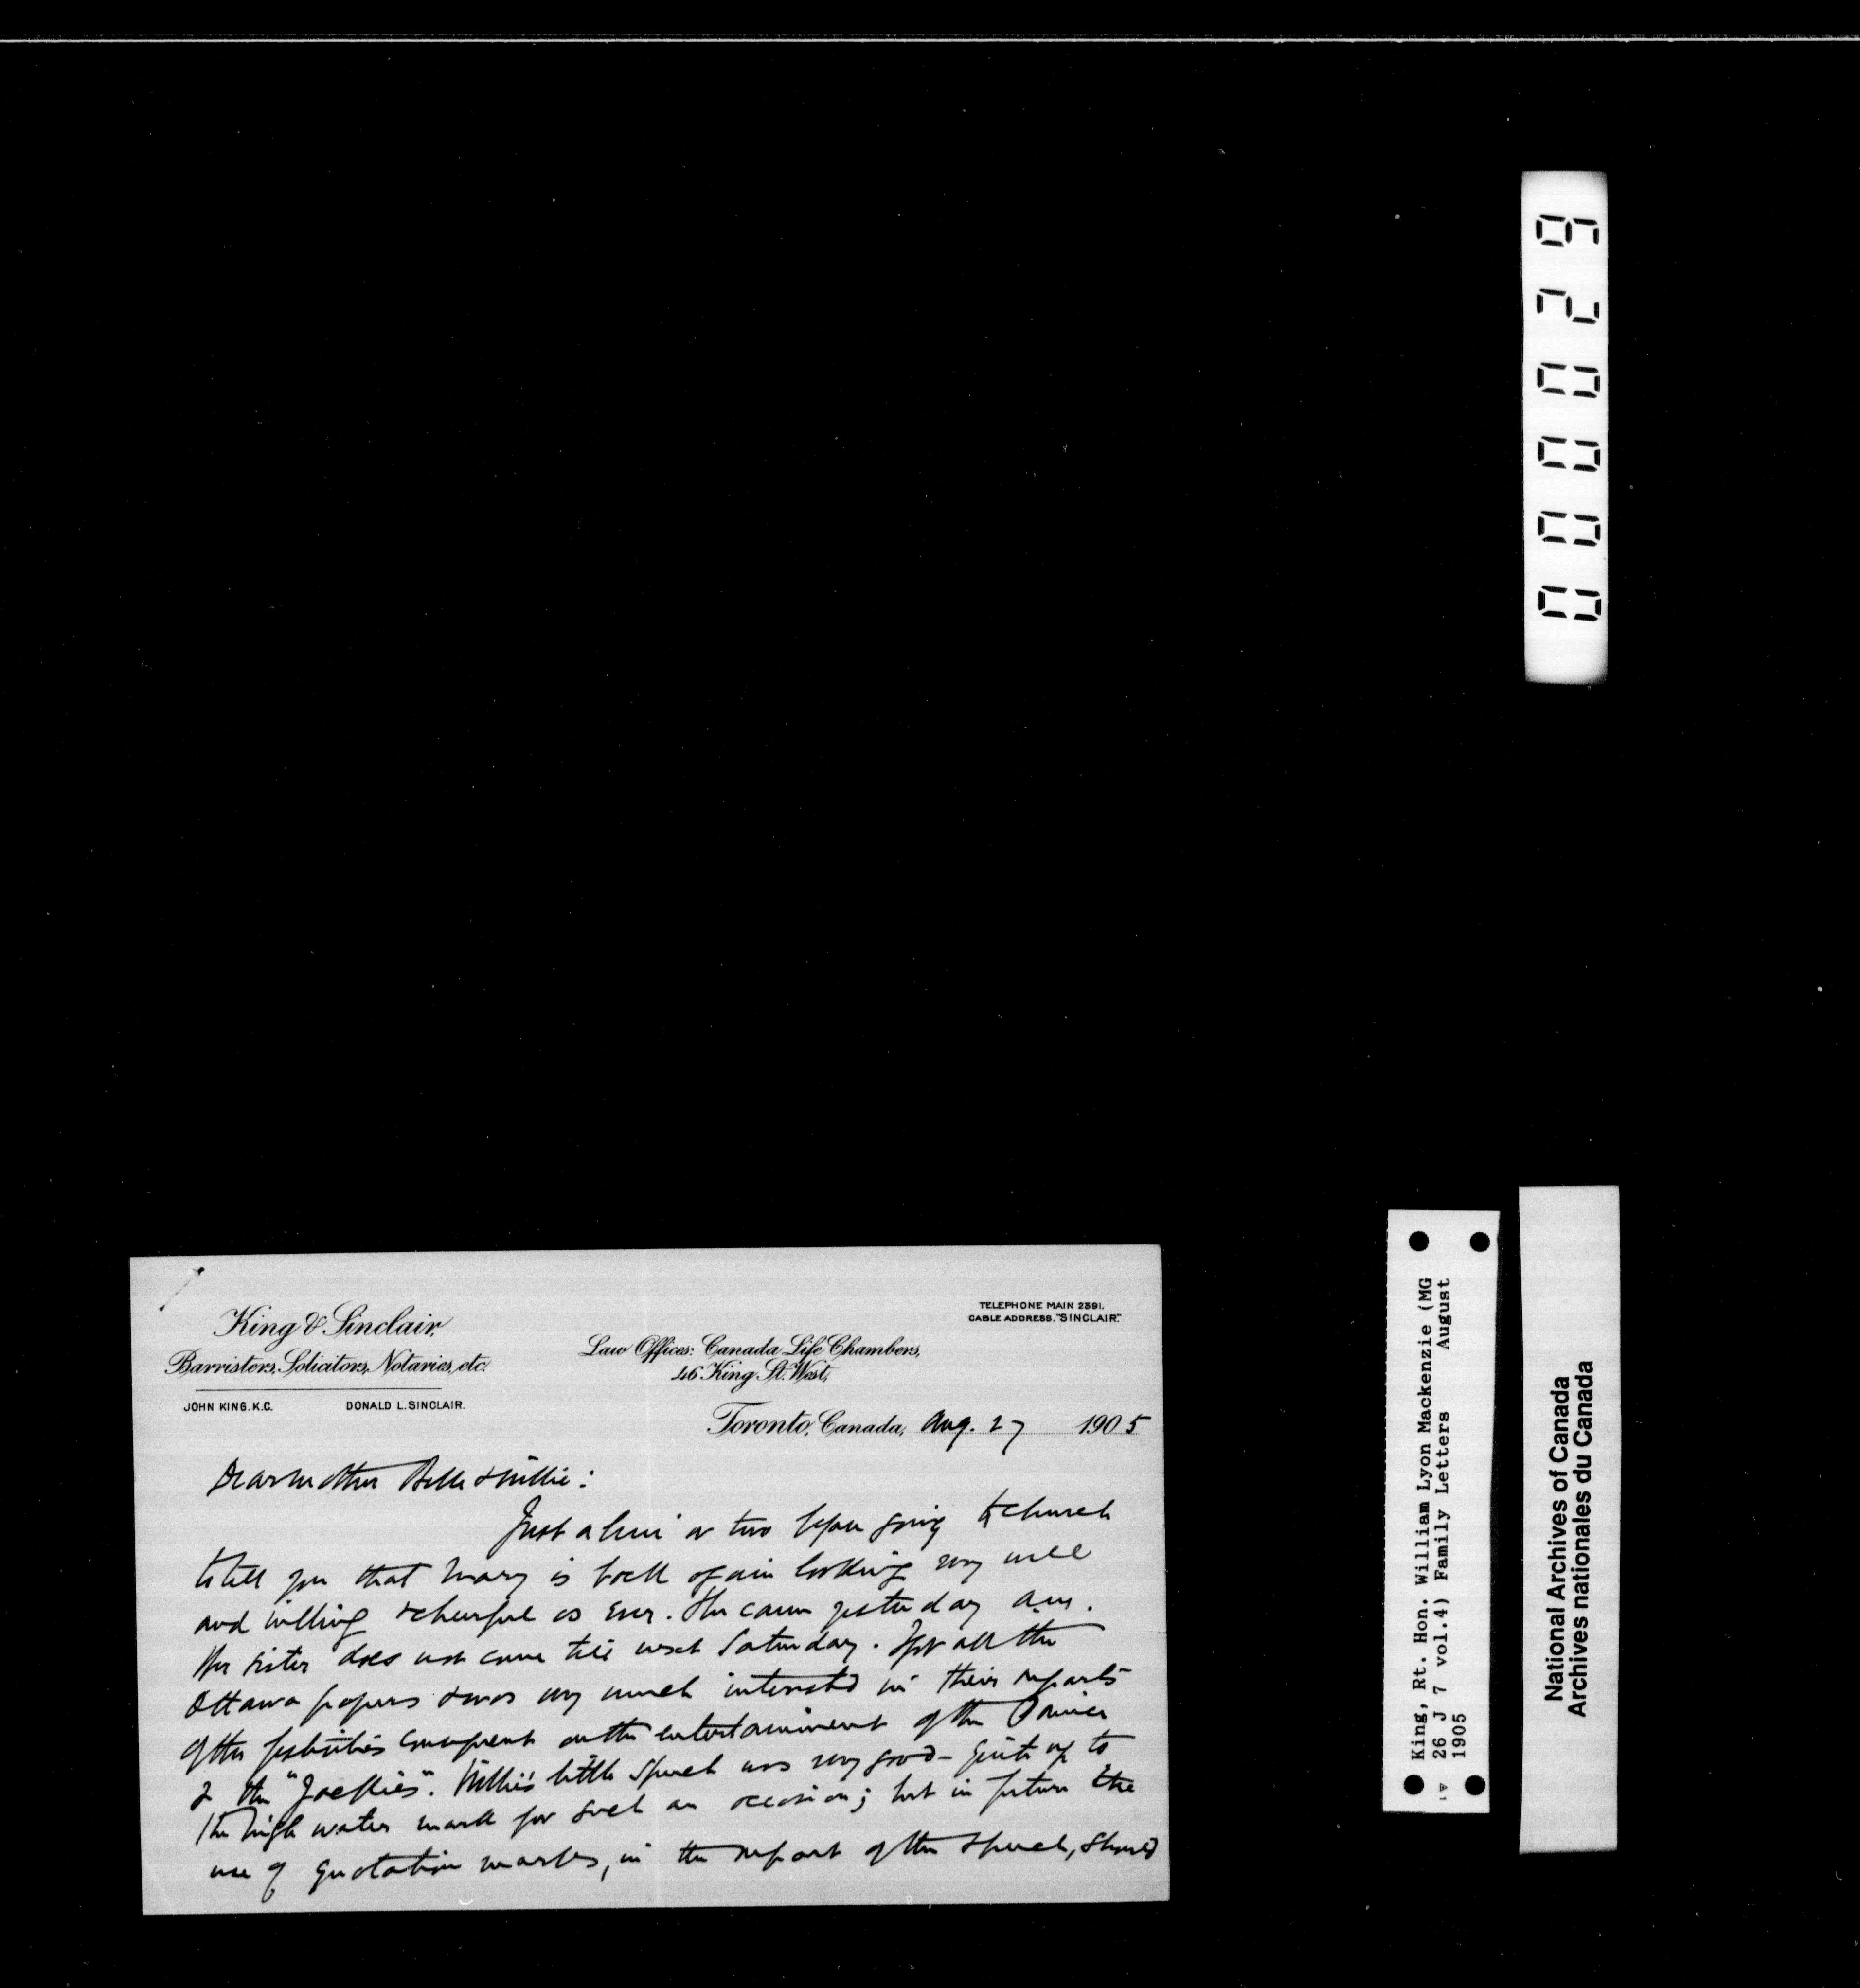 King & Sinclair,
Barristers, Solicitors, Notaries, etc.
JOHN KING. K.C. DONALD L. SINCLAIR.
TELEPHONE MAIN 2391.
CABLE ADDRESS. "SINCLAIR."
Law Offices: Canada Life Chambers,
46 King St. West,
Toronto, Canada, Aug. 27 1905
Dear Mother Bella & Willie:
Just a line or two before going to church
to tell you that Mary is back again looking very well
and willing & cheerful as ever. She came yesterday a.m.
Her sister does not come till next Saturday. I got all the
Ottawa papers & was very much interested in their reports
of the festivities consequent on the entertainment of the Prince
& the "Jackies". Willie's little speech was very good - quite up to
the high water mark for such an occasion; but in future the
use of quotation marks, in the report of the speech, should
000029
King, Rt. Hon. William Lyon Mackenzie (MG
26 J 7 vol.4) Family Letters August
1905
National Archives of Canada
Archives nationales du Canada